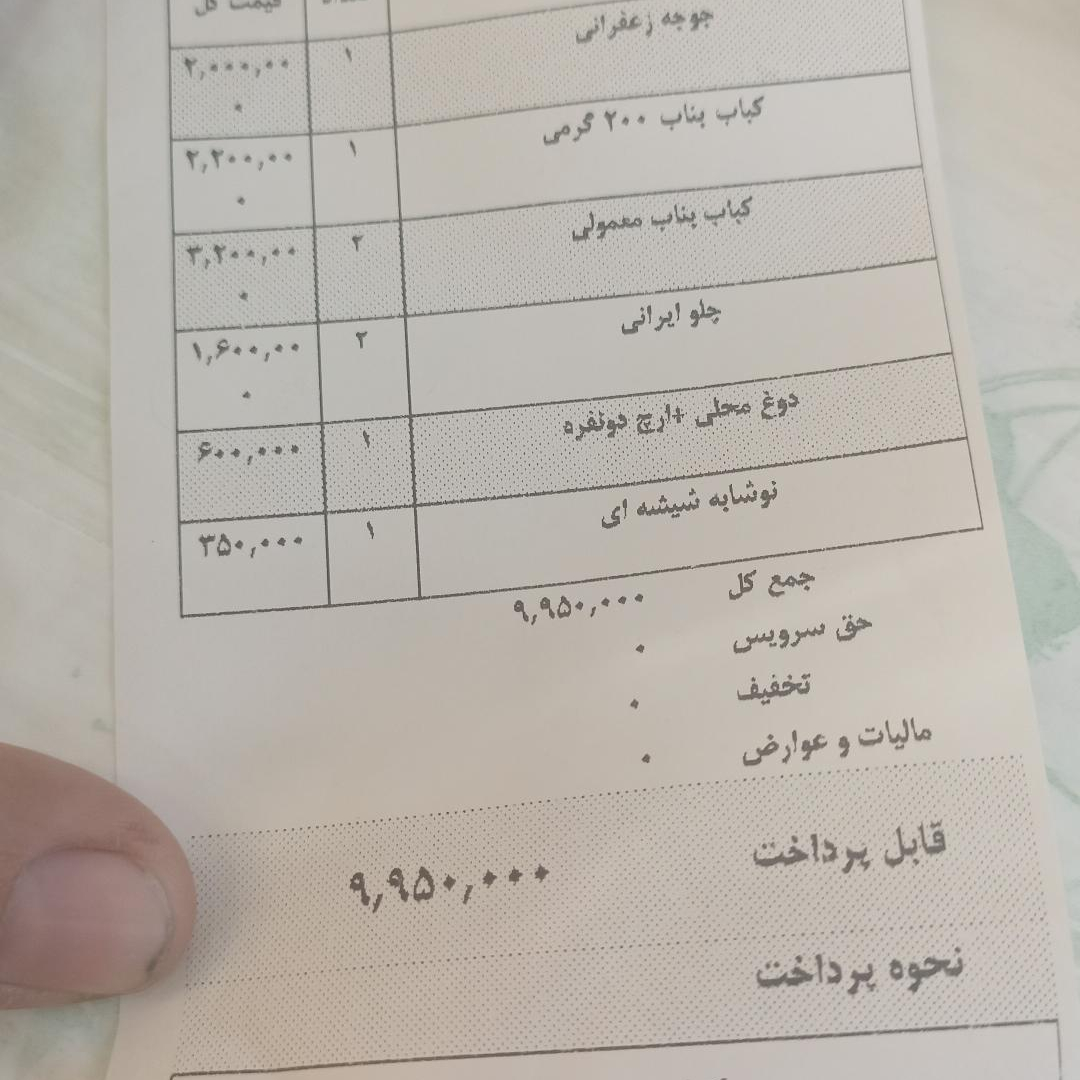 قیمت کل
جوجه زعفرانی ۱ ۲,۰۰۰,۰۰۰
کباب بناب ۲۰۰ گرمی ۱ ۲,۲۰۰,۰۰۰
کباب بناب معمولی ۲ ۳,۲۰۰,۰۰۰
چلو ایرانی ۲ ۱,۶۰۰,۰۰۰
دوغ محلی +ارج دونفره ۱ ۶۰۰,۰۰۰
نوشابه شیشه ای ۱ ۳۵۰,۰۰۰
جمع کل ۹,۹۵۰,۰۰۰
حق سرویس ۰
تخفیف ۰
مالیات و عوارض ۰
قابل پرداخت ۹,۹۵۰,۰۰۰
نحوه پرداخت